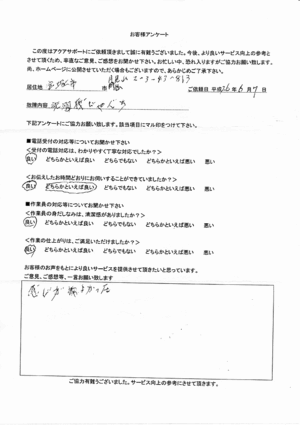 お客様アンケート
この度はアクアサポートにご依頼頂きまして誠に有難うございました。今後、より良いサービス向上の参考と
させて頂くため、率直なご意見、ご感想をお聞かせ下さい。お忙しい中、恐れ入りますがご協力お願い致します。
尚、ホームページに公開させていただく場合もございますので、あらかじめご了承下さい。
居住地 市 ご依頼日 平成26年6月9日
故障内容
下記アンケートにご協力お願い致します。該当項目にマル印をつけて下さい。
■電話受付の対応等についてお聞かせ下さい
<受付の電話対応は、わかりやすく丁寧な対応でしたか?>
良い どちらかといえば良い どちらでもない どちらかといえば悪い 悪い
<お伝えしたお時間どおりにお伺いすることができていましたか?>
良い どちらかといえば良い どちらでもない どちらかといえば悪い 悪い
■作業員の対応等についてお聞かせ下さい
<作業員の身だしなみは、清潔感がありましたか?>
良い どちらかといえば良い どちらでもない どちらかといえば悪い 悪い
<作業の仕上がりは、ご満足いただけましたか?>
良い どちらかといえば良い どちらでもない どちらかといえば悪い 悪い
お客様のお声をもとにより良いサービスを提供させて頂きたいと思っています。
ご意見、ご感想等、一言お願い致します
感じが よかった
ご協力有難うございました。サービス向上の参考にさせて頂きます。